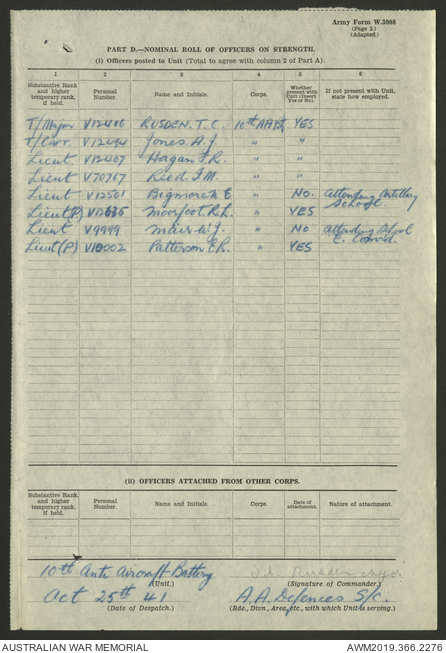 Army Form W.3008
(Page 2.)
(Adapted.)
PART D.—NOMINAL ROLL OF OFFICERS ON STRENGTH.
(i) Officers posted to Unit (Total to agree with column 2 of Part A).
1 2 3 4 5 6
Substantive Rank and higher temporary rank, if held. Personal Number. Name and Initials. Corps. Whether present with Unit (Insert Yes or No). If not present with Unit, state how employed.
T/Major V12406 RUSDEN. T. C. 10th AA Bty YES
T/Capt. V12494 Jones. A. J. " "
Lieut V12407 Hagan J. R. " "
Lieut V70767 Reed J. M. " "
Lieut V12501 E " No. Attending Artillery School.
Lieut(P) V12635 Moorfoot. R. L. " YES
Lieut V9999 Mair W. J. " NO Attending School
Lieut (P) V10002 Patterson E. R. " YES
(ii) OFFICERS ATTACHED FROM OTHER CORPS.
Substantive Rank and higher temporary rank, if held. Personal Number. Name and Initials. Corps. Date of attachment. Nature of attachment.
10th Anti Aircraft Battery Rusden Major
(Unit.) (Signature of Commander.)
Oct 25th 41 A. A. Defences S/C.
(Date of Despatch.) (Bde., Divn., Area, etc., with which Unit is serving.)
AUSTRALIAN WAR MEMORIAL AWM2019.366.2276